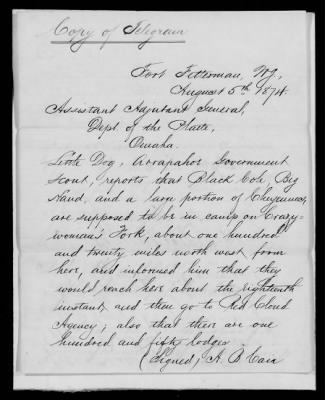 Copy of Telegram
Fort Fetterman, Wy.,
August 5th 1874.
Assistant Adjutant General,
Dept. of the Platte,
Omaha.
Little Dog, Arrapahoe Government
Scout, reports that Black Cole, Big
and a large portion of Cheyennes,
are supposed to be in camp on Crazy-
woman's Fork, about one hundred
and twenty miles north west from
here, and informed him that they
would reach here about the eighteenth
instant and then go to Red Cloud
Agency; also that there are one
hundred and fifty lodges.
(Signed) A. B. Cain